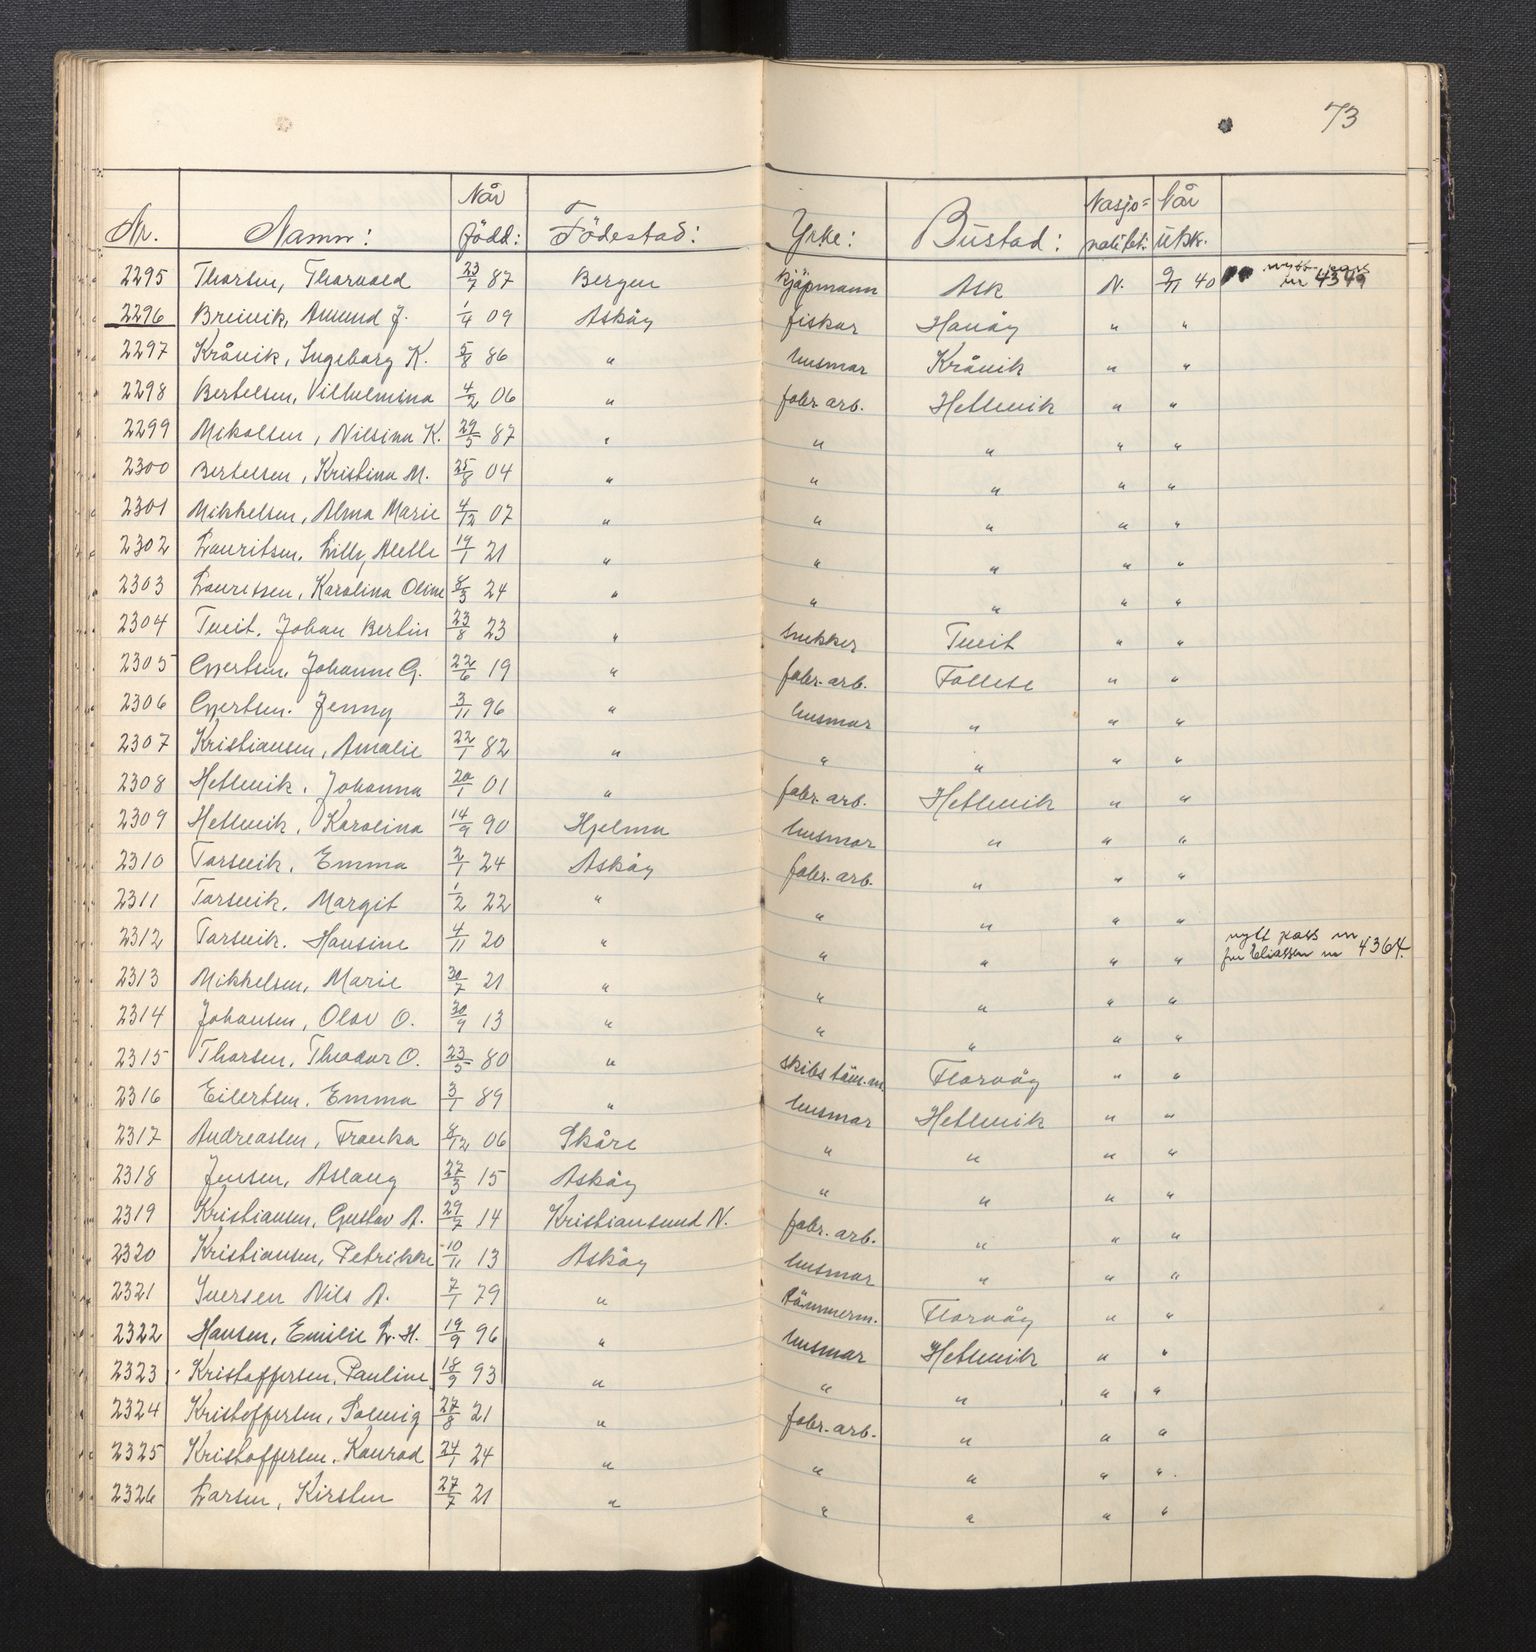 73
Nr. Namn: Når född: Födestad: Yrke: Bustad: Nasjo=nalitet: Når utsk.
2295 Thorsen, Thorvald 23/7 87 Bergen kjöpmann Ask N. 9/11 40 nytt pass nr 4349
2296 Breivik, Amund J. 1/4 09 Asköy fiskar Hanöy " "
2297 Kråvik, Ingeborg K. 5/8 86 " husmor Kråvik " "
2298 Bertelsen, Vilhelmina 4/2 06 " fabr. arb. Hetlevik " "
2299 Mikalsen, Nilsina K. 29/5 87 " " " " "
2300 Bertelsen, Kristina M. 25/8 04 " " " " "
2301 Mikkelsen, Alma Marie 4/12 07 " " " " "
2302 Lauritsen, Lilly Aletle 19/1 21 " " " " "
2303 Lauritsen, Karolina Oline 8/3 24 " " " " "
2304 Tveit, Johan Bertin 23/8 23 " snekker Tveit " "
2305 Evertsen, Johanne G. 22/6 19 " fabr. arb. Follese " "
2306 Evertsen. Jenny 3/11 96 " husmor " " "
2307 Kristiansen, Amalie 22/1 82 " " " " "
2308 Hetlevik, Johanna 20/1 01 " fabr. arb. Hetlevik " "
2309 Hetlevik, Karolina 14/9 90 Hjelma husmor " " "
2310 Torsvik, Emma 2/1 24 Asköy fabr. arb. " " "
2311 Torsvik, Margit 1/2 22 " " " " "
2312 Torsvik. Hansine 4/11 20 " " " " " nytt pass nr fru Eliassen nr 4364.
2313 Mikkelsen, Marie 30/7 21 " " " " "
2314 Johansen, Olav O. 30/9 13 " " " " "
2315 Thorsen, Theodor O. 23/5 80 " skibstöm.m. Florvåg " "
2316 Eilertsen. Emma 3/1 89 " husmor Hetlevik " "
2317 Andreassen, Franka 8/12 06 Skåre " " " "
2318 Jensen, Aslaug 27/3 15 Asköy " " " "
2319 Kristiansen, Gustav A. 29/7 14 Kristiansund N. fabr. arb. " " "
2320 Kristiansen, Petrikke 10/11 13 Asköy husmor " " "
2321 Iversen Nils A. 7/1 79 " tömmerm. Florvåg " "
2322 Hansen, Emilie L. H. 19/9 96 " husmor Hetlevik " "
2323 Kristoffersen, Pauline 18/9 93 " " " " "
2324 Kristoffersen, Solveig 27/8 21 " fabr. arb. " " "
2325 Kristoffersen, Konrad 24/1 24 " " " " "
2326 Larsen, Kirsten 27/7 21 " " " " "